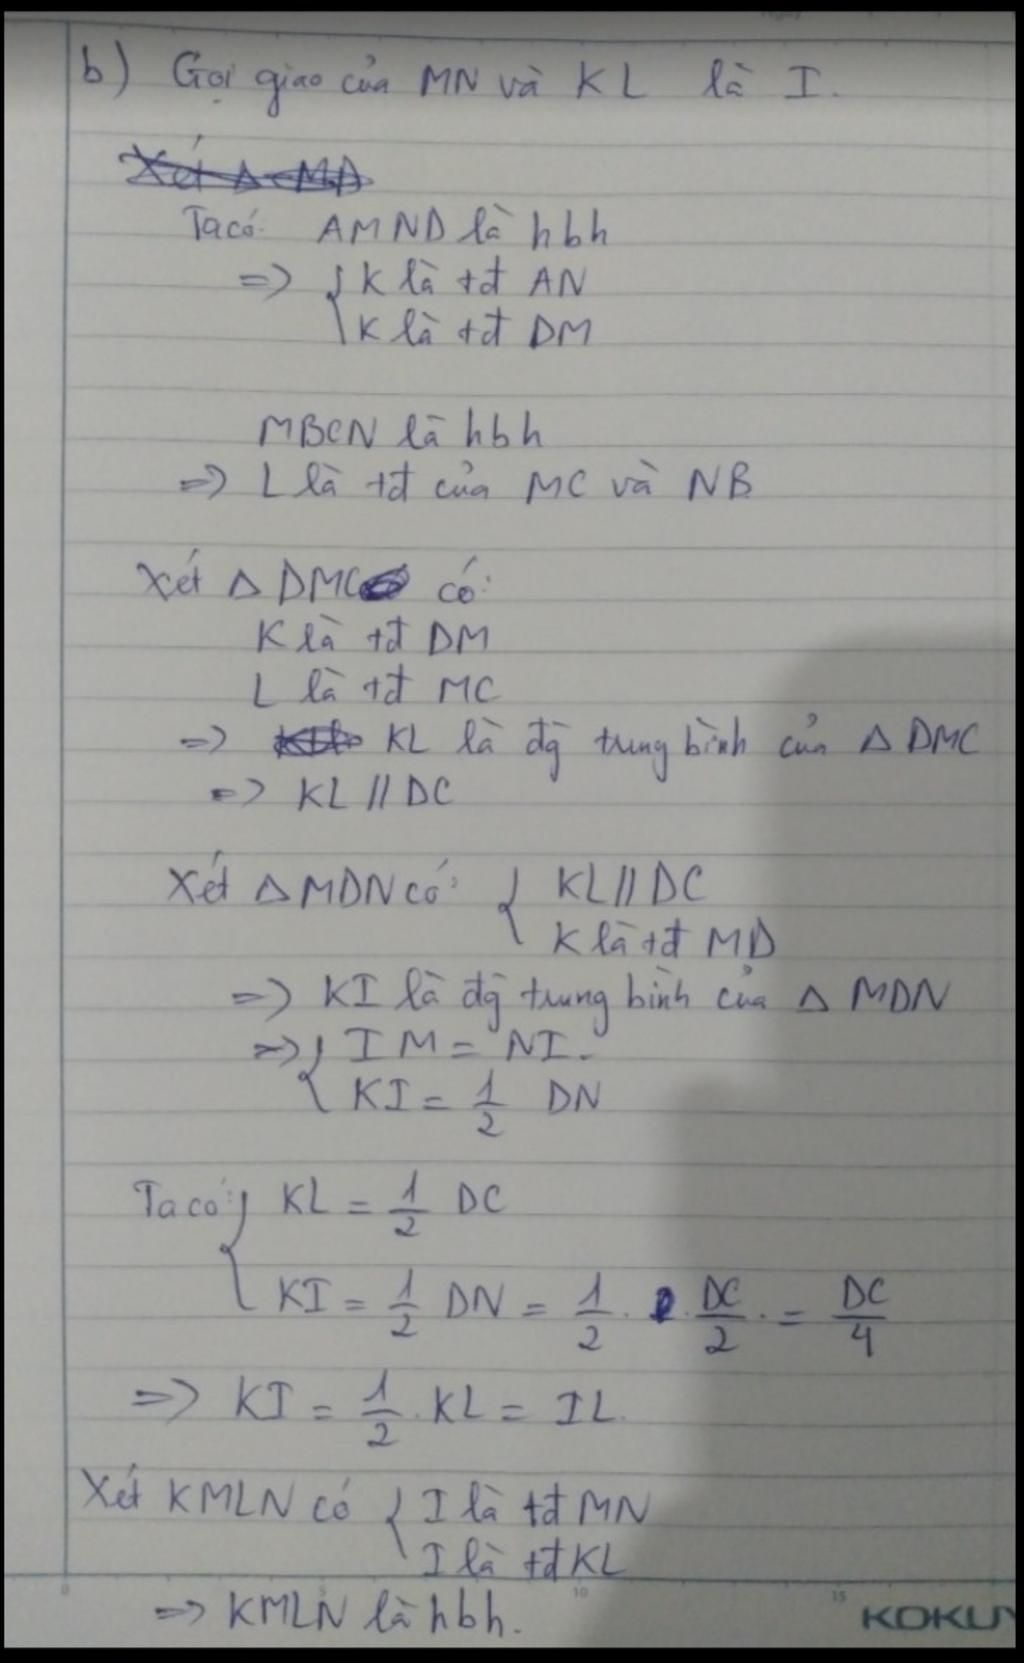 b) Gọi giao của MN và KL là I.
Xét Δ MD
Ta có: AMND là hbh
=> { K là tđ AN
K là tđ DM
MBCN là hbh
=> L là tđ của MC và NB
Xét Δ DMC có:
K là tđ DM
L là tđ MC
=> KL là đg trung bình của Δ DMC
=> KL // DC
Xét Δ MDN có: { KL // DC
K là tđ MD
=> KI là đg trung bình của Δ MDN
=> { IM = NI.
KI = 1/2 DN
Ta có: { KL = 1/2 DC
KI = 1/2 DN = 1/2 . DC/2 . = DC/4
=> KI = 1/2 . KL = IL.
Xét KMLN có { I là tđ MN
I là tđ KL
=> KMLN là hbh.
0 5 10 15
KOKUY